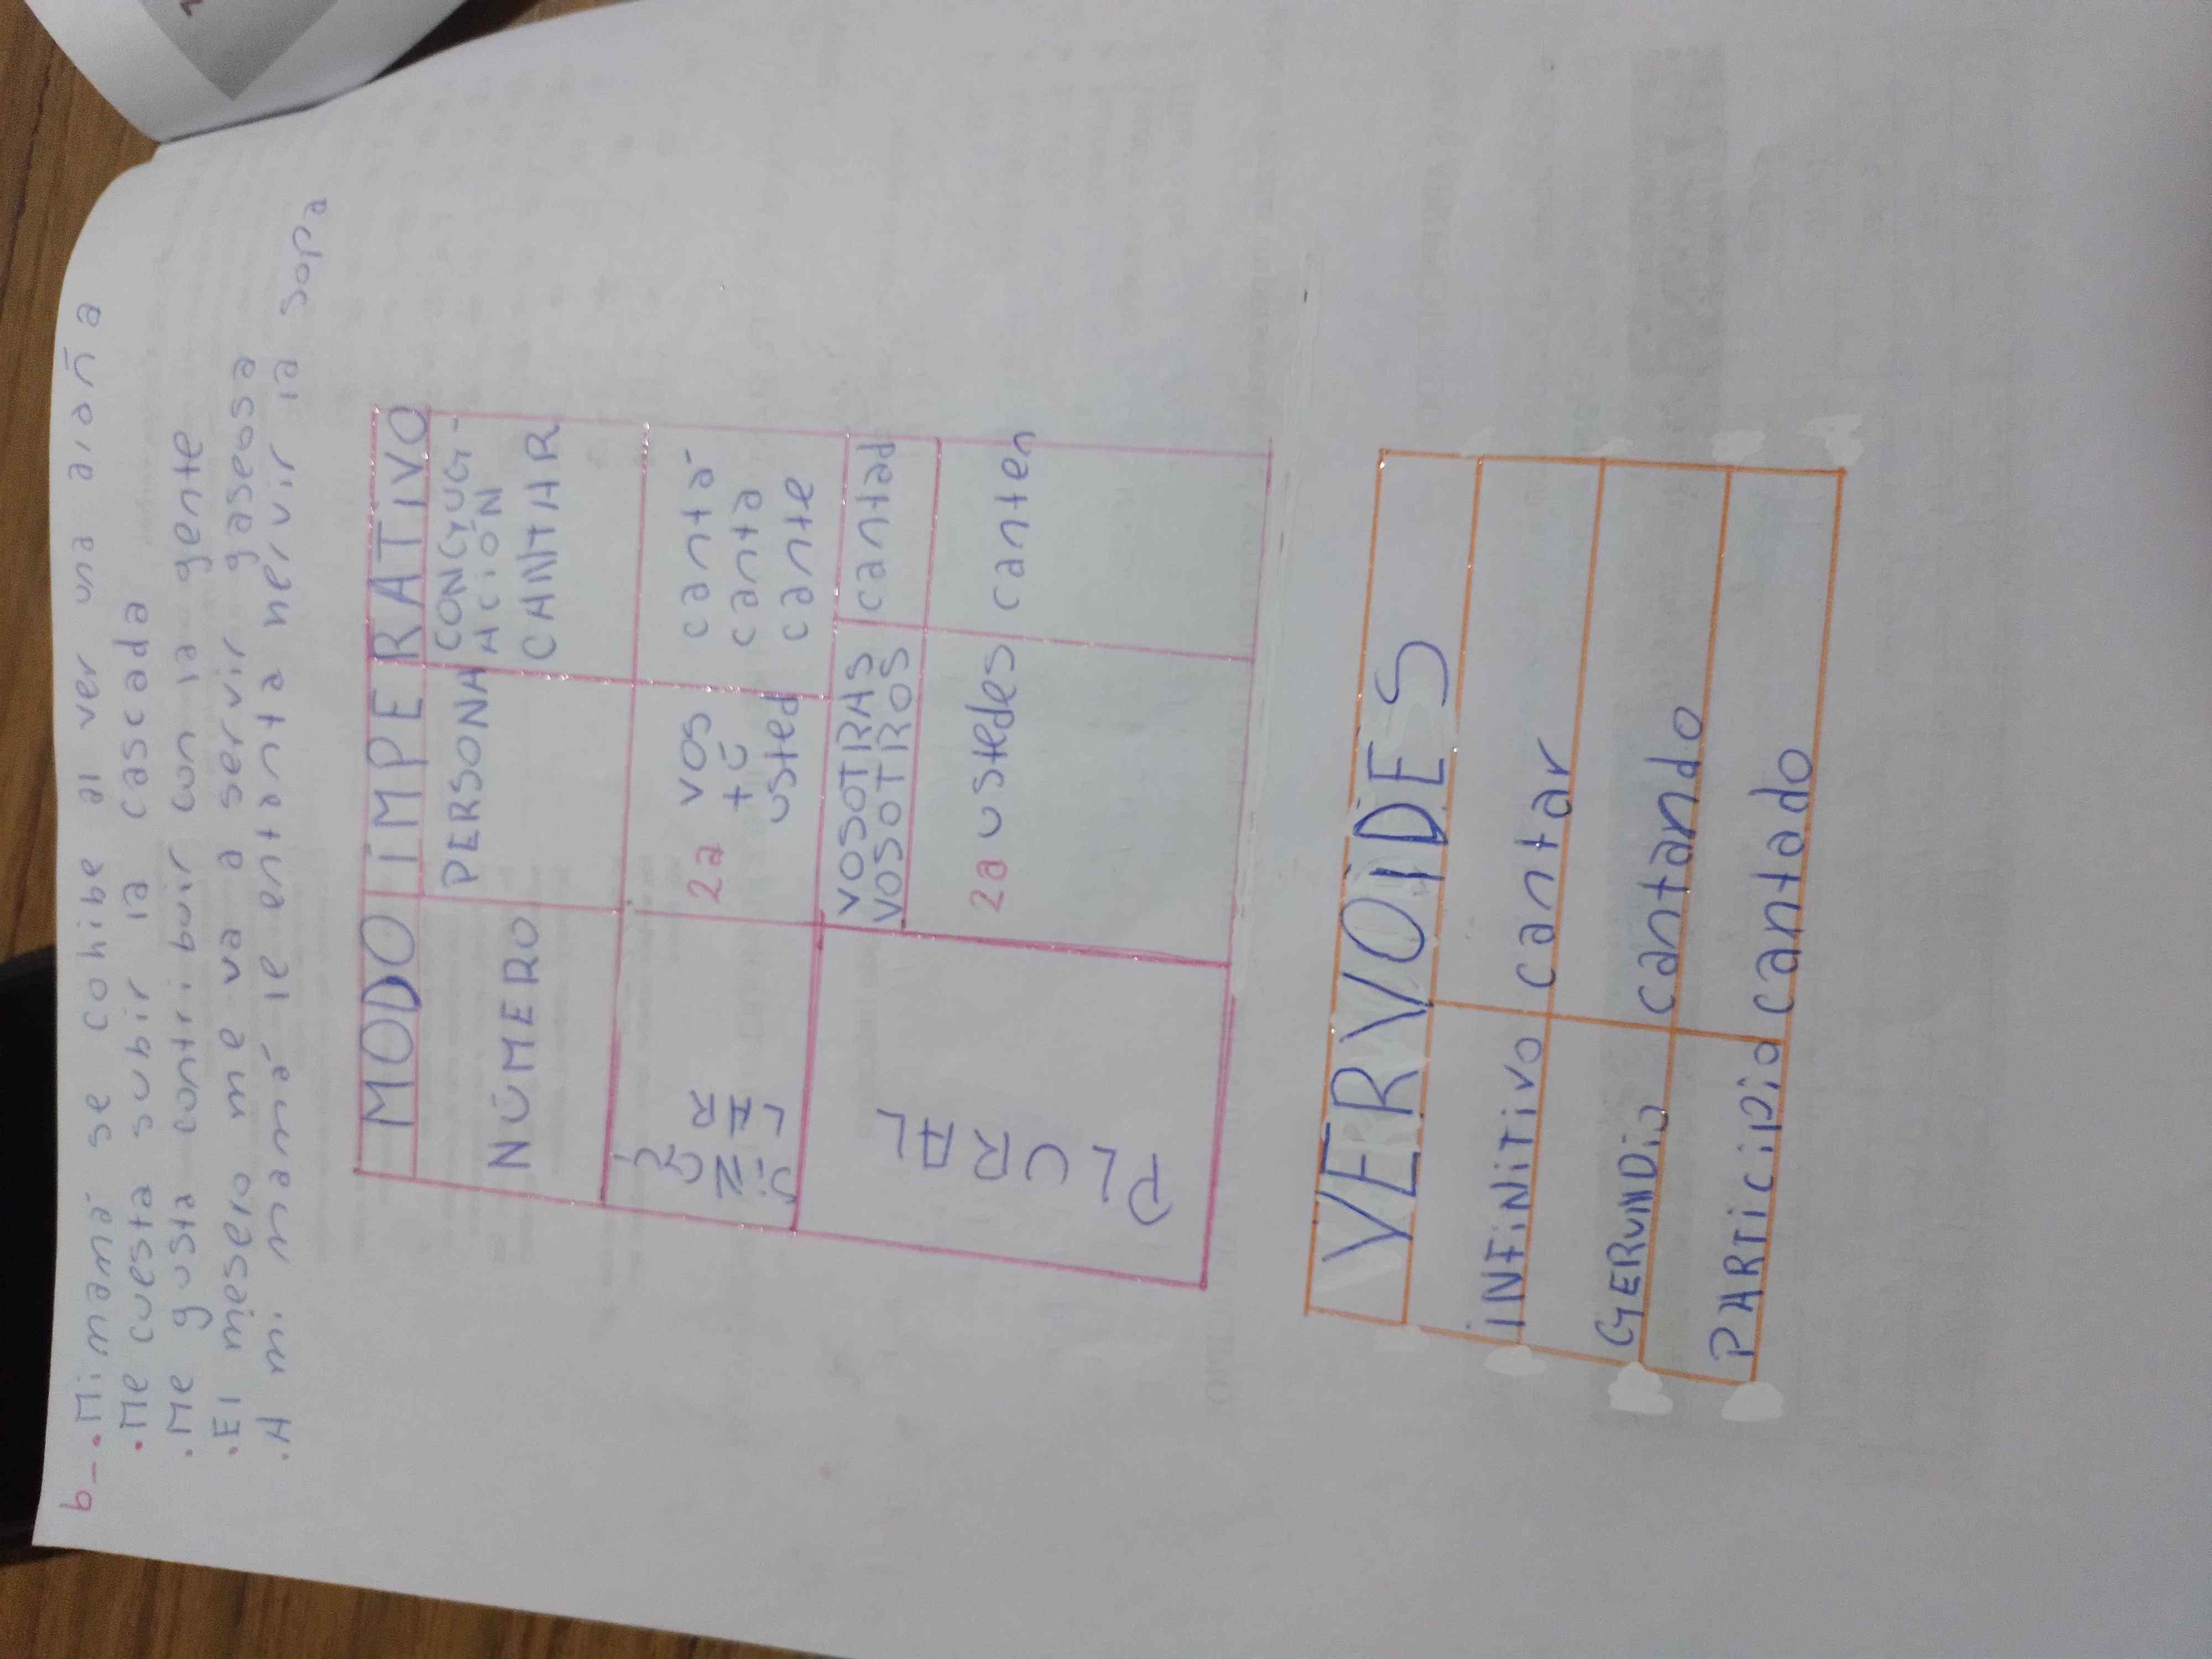 b-. Mi mamá se cohibe al ver una araña
. Me cuesta subir la cascada
. Me gusta contribuir con la gente
. El mesero me va a servir gaseosa
. A mi mamá le entanta hervir la sopa
MODO IMPERATIVO
NÚMERO PERSONA CONGUG-
ACIÓN
CANTAR
SINGU
LAR
2a vos cantá
tú canta
usted cante
PLURAL
VOSOTRAS
VOSOTROS cantad
2a ustedes canten
VERVOIDES
INFINITIVO cantar
GERUNDIO cantando
PARTICIPIO cantado